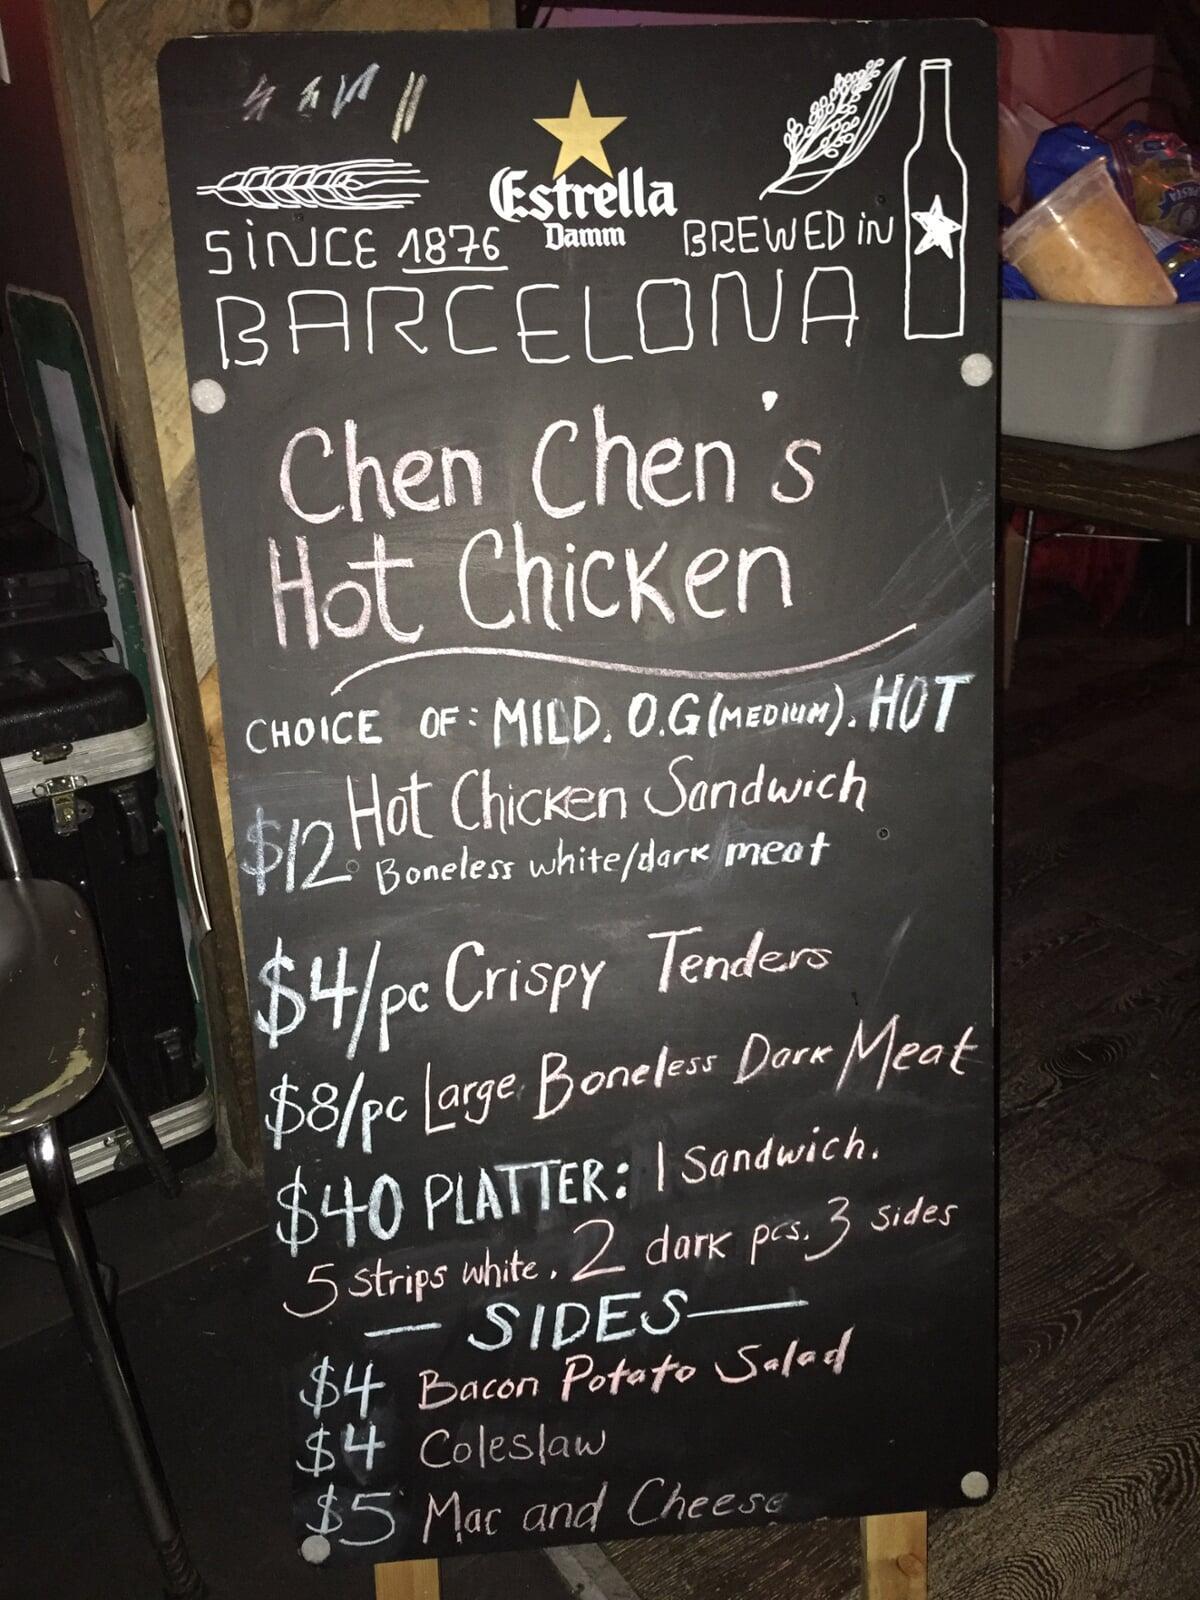 Estrella
Damm
SINCE 1876
BREWED IN
BARCELONA
Chen Chen's
Hot Chicken
CHOICE OF: MILD. O.G (MEDIUM). HOT
$12 Hot Chicken Sandwich
Boneless white/dark meat
$4/pc Crispy Tenders
$8/pc Large Boneless Dark Meat
$40 PLATTER: 1 Sandwich.
5 strips white. 2 dark pcs. 3 sides
— SIDES —
$4 Bacon Potato Salad
$4 Coleslaw
$5 Mac and Cheese